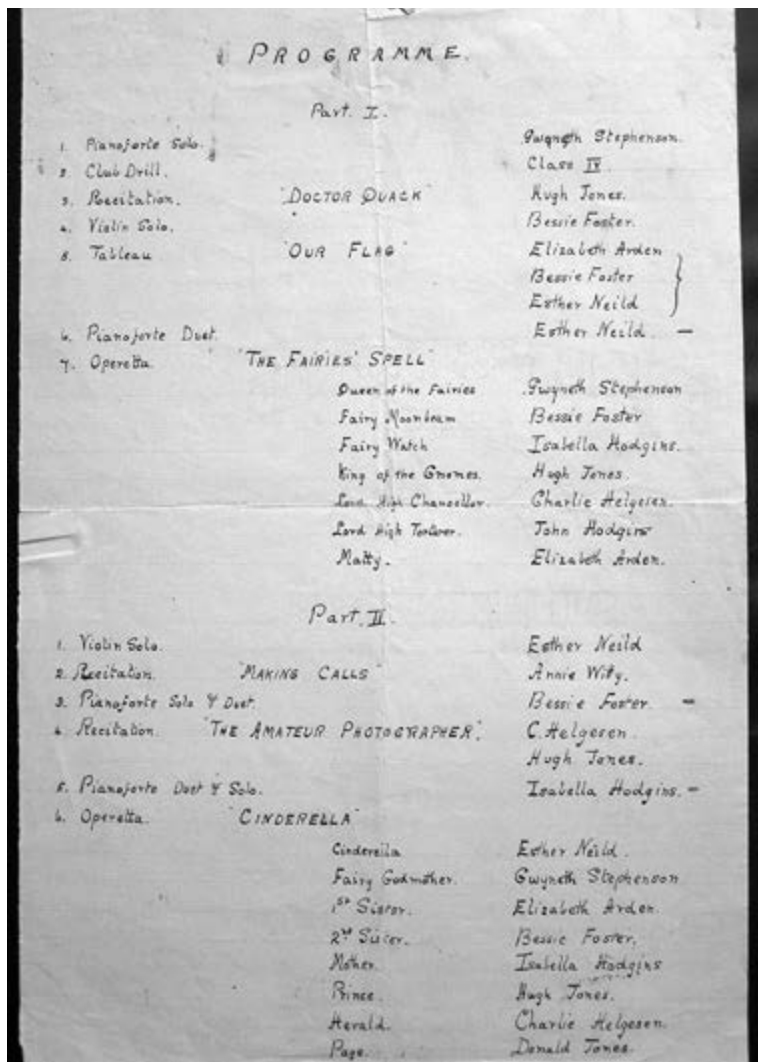 PROGRAMME.
Part. I.
1. Pianoforte Solo. Gwyneth Stephenson.
2. Club Drill. Class IV.
3. Recitation. "DOCTOR QUACK" Hugh Jones.
4. Violin Solo. Bessie Foster.
5. Tableau "OUR FLAG" Elizabeth Arden
Bessie Foster
Esther Neild
6. Pianoforte Duet. Esther Neild. —
7. Operetta. "THE FAIRIES' SPELL"
Queen of the Fairies Gwyneth Stephenson
Fairy Moonbeam Bessie Foster
Fairy Watch Isabella Hodgins.
King of the Gnomes. Hugh Jones.
Lord High Chancellor. Charlie Helgesen.
Lord High Torturer. John Hodgins
Matty. Elizabeth Arden.
Part. II.
1. Violin Solo. Esther Neild
2. Recitation. "MAKING CALLS" Annie Witty.
3. Pianoforte Solo & Duet. Bessie Foster. —
4. Recitation. "THE AMATEUR PHOTOGRAPHER". C. Helgesen.
Hugh Jones.
5. Pianoforte Duet & Solo. Isabella Hodgins. —
6. Operetta. "CINDERELLA"
Cinderella Esther Neild.
Fairy Godmother. Gwyneth Stephenson
1st Sister. Elizabeth Arden.
2nd Sister. Bessie Foster.
Mother. Isabella Hodgins
Prince. Hugh Jones.
Herald. Charlie Helgesen.
Page. Donald Jones.